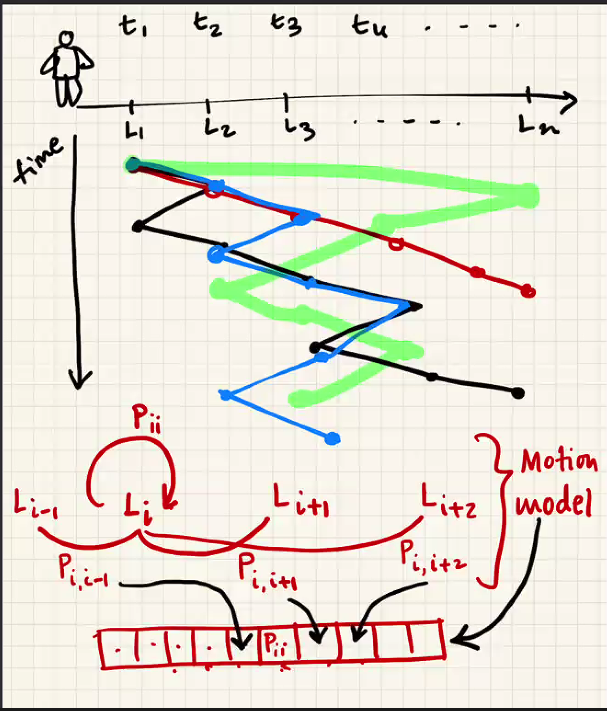 t₁ t₂ t₃ t₄ . - - - .
L₁ L₂ L₃ . - - - . Lₙ
time
Pᵢᵢ
Lᵢ₋₁ Lᵢ Lᵢ₊₁ Lᵢ₊₂
Motion
model
Pᵢ,ᵢ₋₁ Pᵢ,ᵢ₊₁ Pᵢ,ᵢ₊₂
. . . . Pᵢᵢ